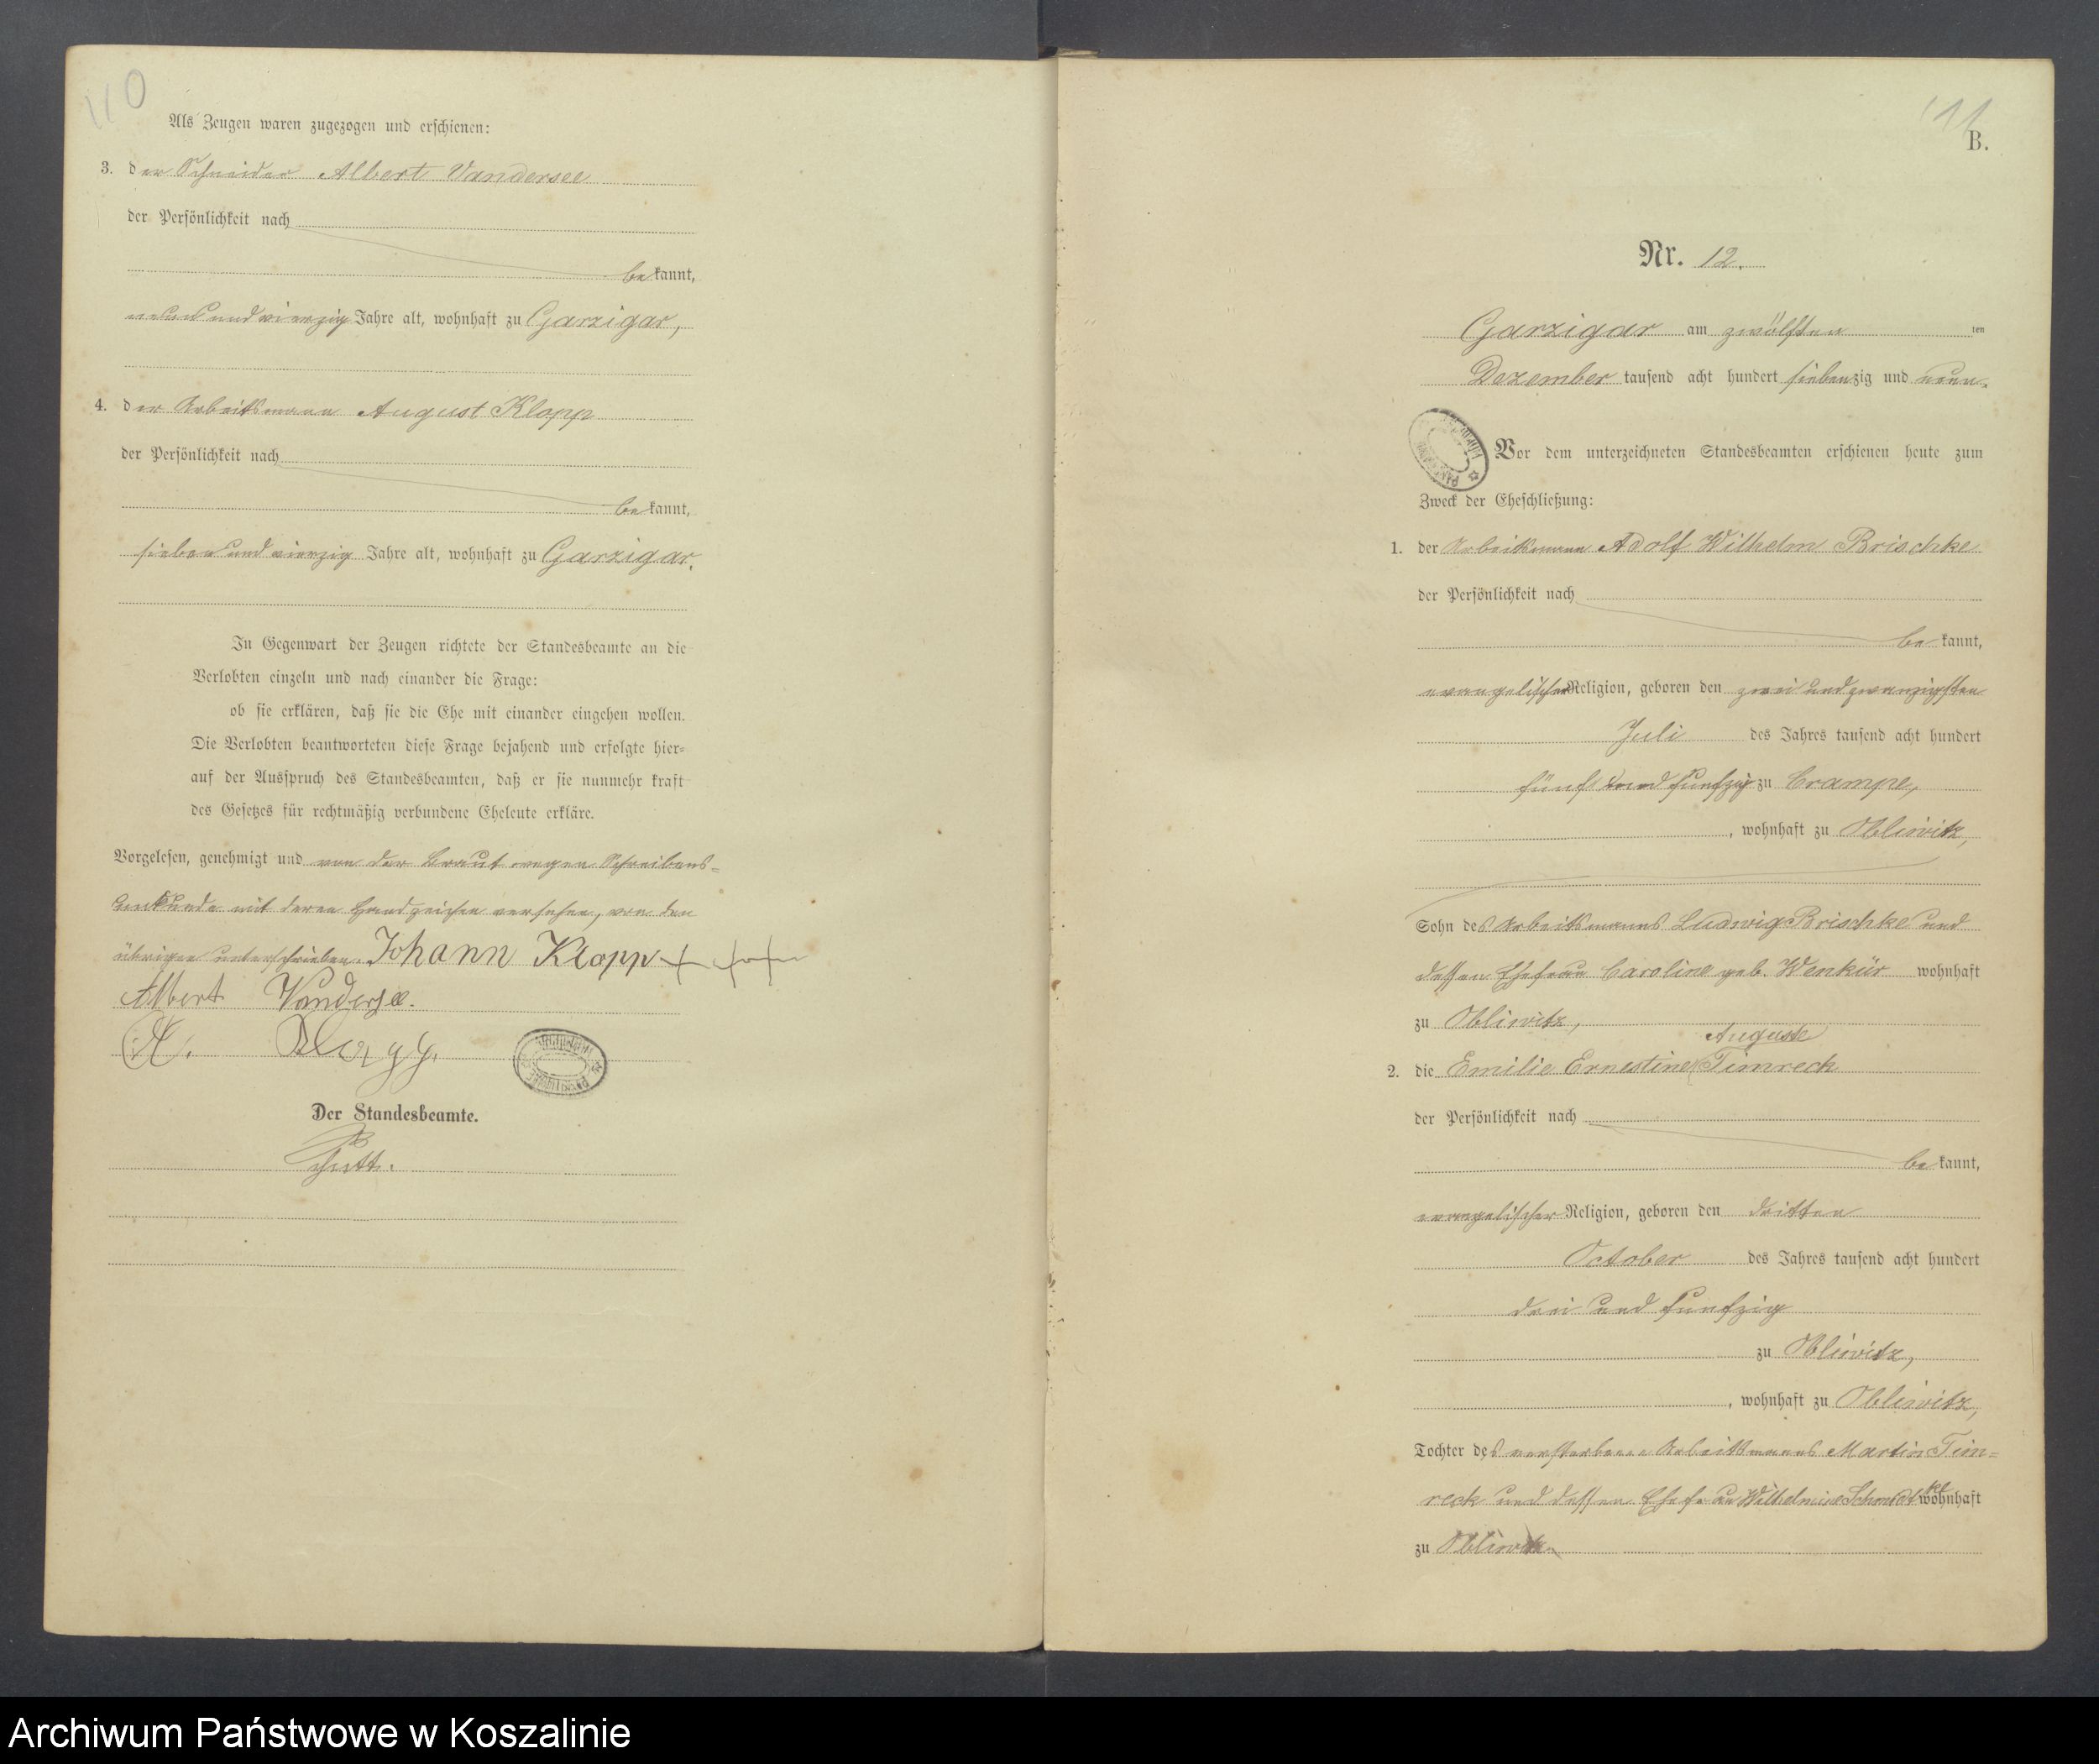 110
Als Zeugen waren zugezogen und erschienen:
3. der Schneider Albert Vandersee
der Persönlichkeit nach
bekannt,
neun und vierzig Jahre alt, wohnhaft zu Garzigar,
4. der Arbeitsmann August Klopp
der Persönlichkeit nach
bekannt,
sieben und vierzig Jahre alt, wohnhaft zu Garzigar.
In Gegenwart der Zeugen richtete der Standesbeamte an die
Verlobten einzeln und nach einander die Frage:
ob sie erklären, daß sie die Ehe mit einander eingehen wollen.
Die Verlobten beantworteten diese Frage bejahend und erfolgte hier-
auf der Ausspruch des Standesbeamten, daß er sie nunmehr kraft
des Gesetzes für rechtmäßig verbundene Eheleute erkläre.
Vorgelesen, genehmigt und von der Braut wegen Schreibens-
unkunde mit deren Handzeichen versehen, von den
übrigen unterschrieben. Johann Klopp +++
Albert Vandersee.
A. Klopp.
Der Standesbeamte.
111
B.
Nr. 12.
Garzigar am zwölften ten
Dezember tausend acht hundert siebenzig und neun.
Vor dem unterzeichneten Standesbeamten erschienen heute zum
Zweck der Eheschließung:
1. der Arbeitsmann Adolf Wilhelm Brischke
der Persönlichkeit nach
bekannt,
evangelischer Religion, geboren den zwei und zwanzigsten
Juli des Jahres tausend acht hundert
fünf und funfzig zu Crampe,
, wohnhaft zu Obliwitz,
Sohn des Arbeitsmanns Ludwig Brischke und
dessen Ehefrau Caroline geb. Wenkür wohnhaft
zu Obliwitz,
Auguste
2. die Emilie Ernestine Timreck
der Persönlichkeit nach
bekannt,
evangelischer Religion, geboren den dritten
October des Jahres tausend acht hundert
drei und funfzig
zu Obliwitz,
, wohnhaft zu Obliwitz,
Tochter des verstorbenen Arbeitsmanns Martin Tim-
reck und dessen Ehefrau Wilhelmine Schmidtke wohnhaft
zu Obliwitz
Archiwum Państwowe w Koszalinie